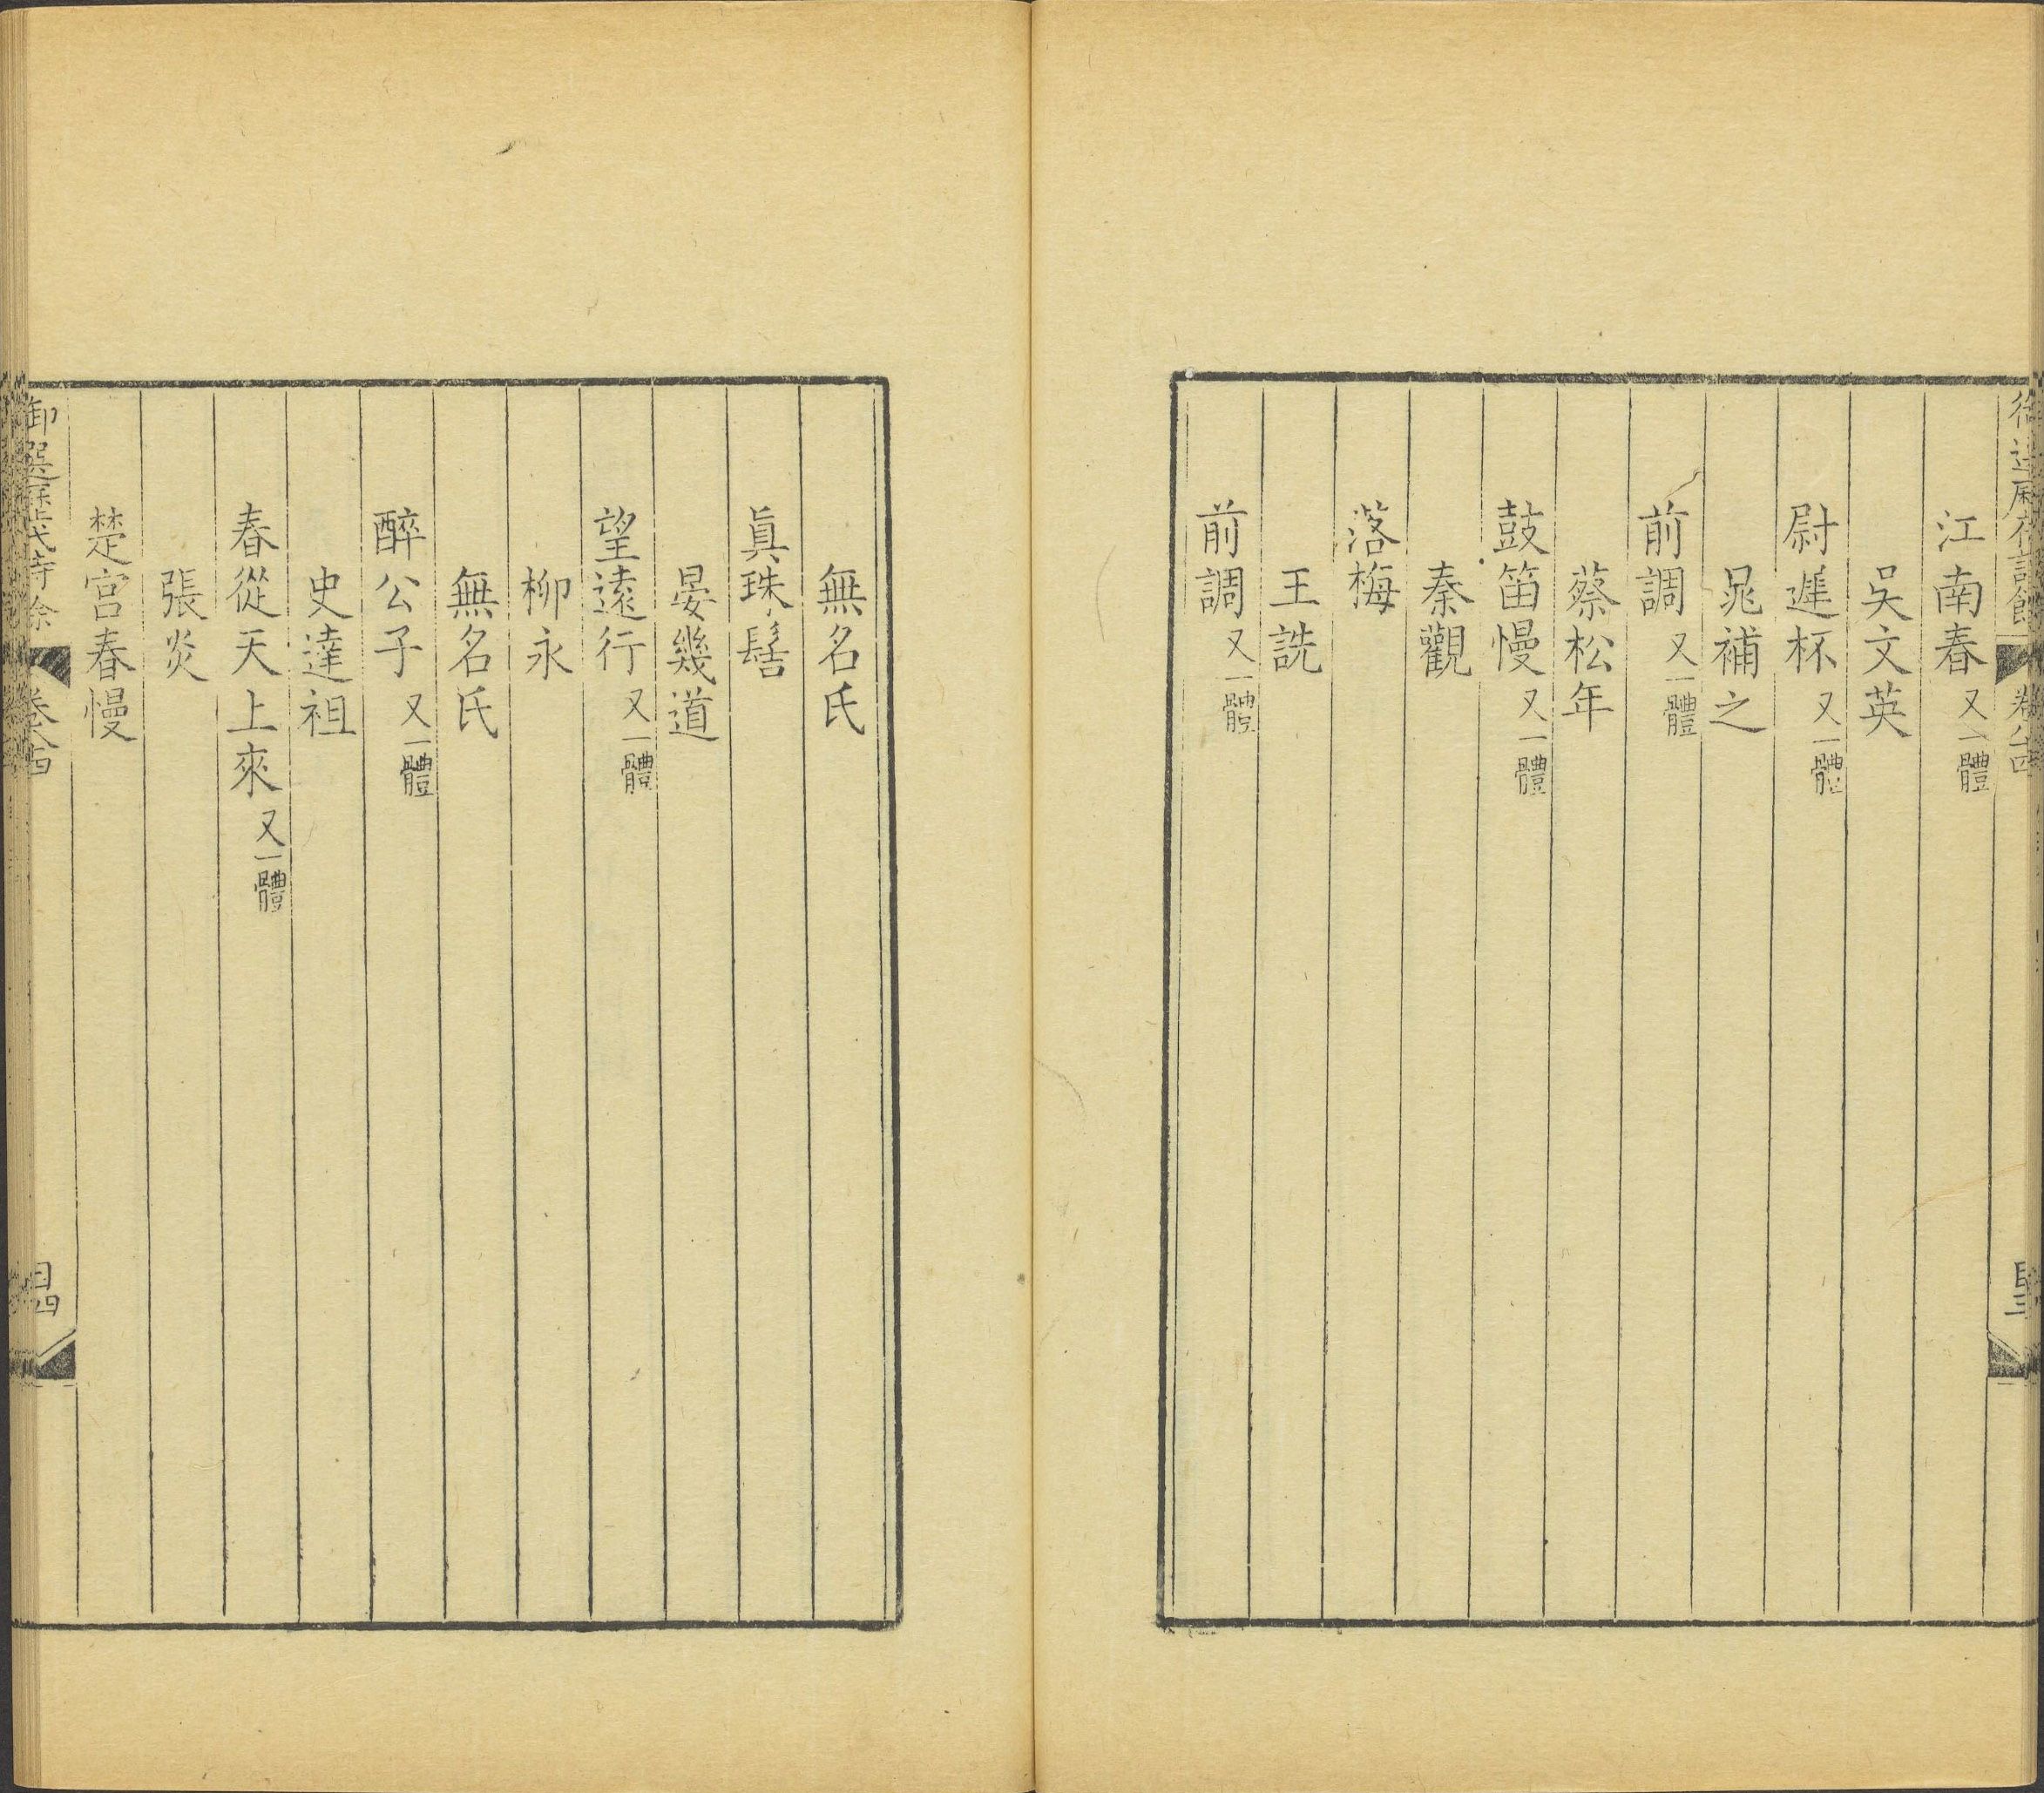 江南春又一體
吳文英
尉遲杯又一體
晁補之
前調又一體
蔡松年
鼓笛慢又一體
秦觀
落梅
王詵
前調又一體
無名氏
眞珠髻
晏幾道
望遠行又一體
柳永
無名氏
醉公子又一體
史達祖
春從天上來又一體
張炎
楚宮春慢